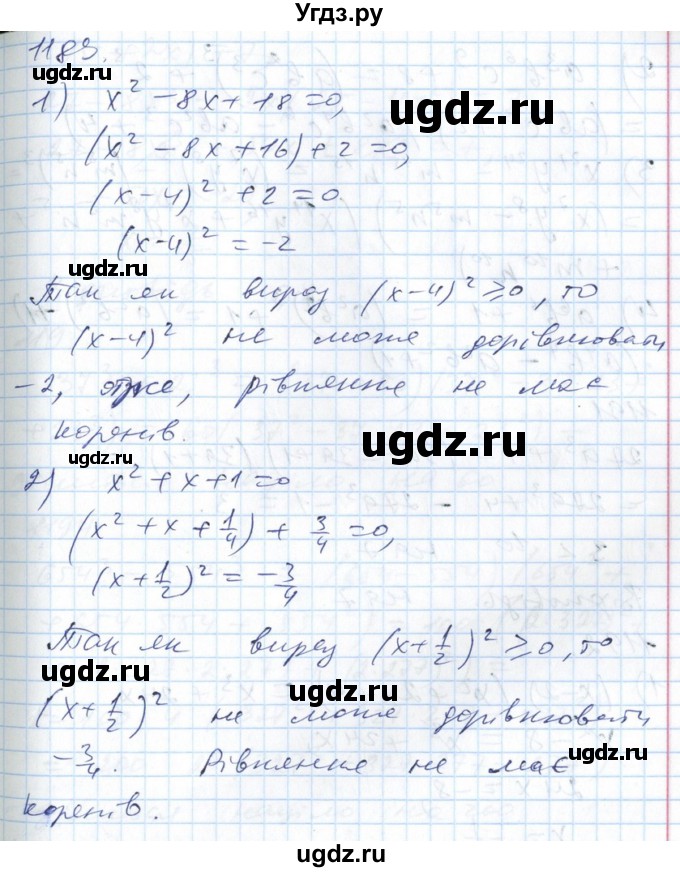 Угдз.ру
1183.
1) x² - 8x + 18 = 0,
ugdz.ru
(x² - 8x + 16) + 2 = 0,
(x - 4)² + 2 = 0
ugdz.ru
(x - 4)² = -2
ugdz.ru
Так як вираз (x - 4)² ⩾ 0, то
(x - 4)² не може дорівнювати
-2, отже, рівняння не має
ugdz.ru
коренів.
ugdz.ru
2) x² + x + 1 = 0
(x² + x + 1/4) + 3/4 = 0,
ugdz.ru
(x + 1/2)² = -3/4
Так як вираз (x + 1/2)² ⩾ 0, то
ugdz.ru
(x + 1/2)² не може дорівнювати
ugdz.ru
-3/4. Рівняння не має
коренів.
ugdz.ru